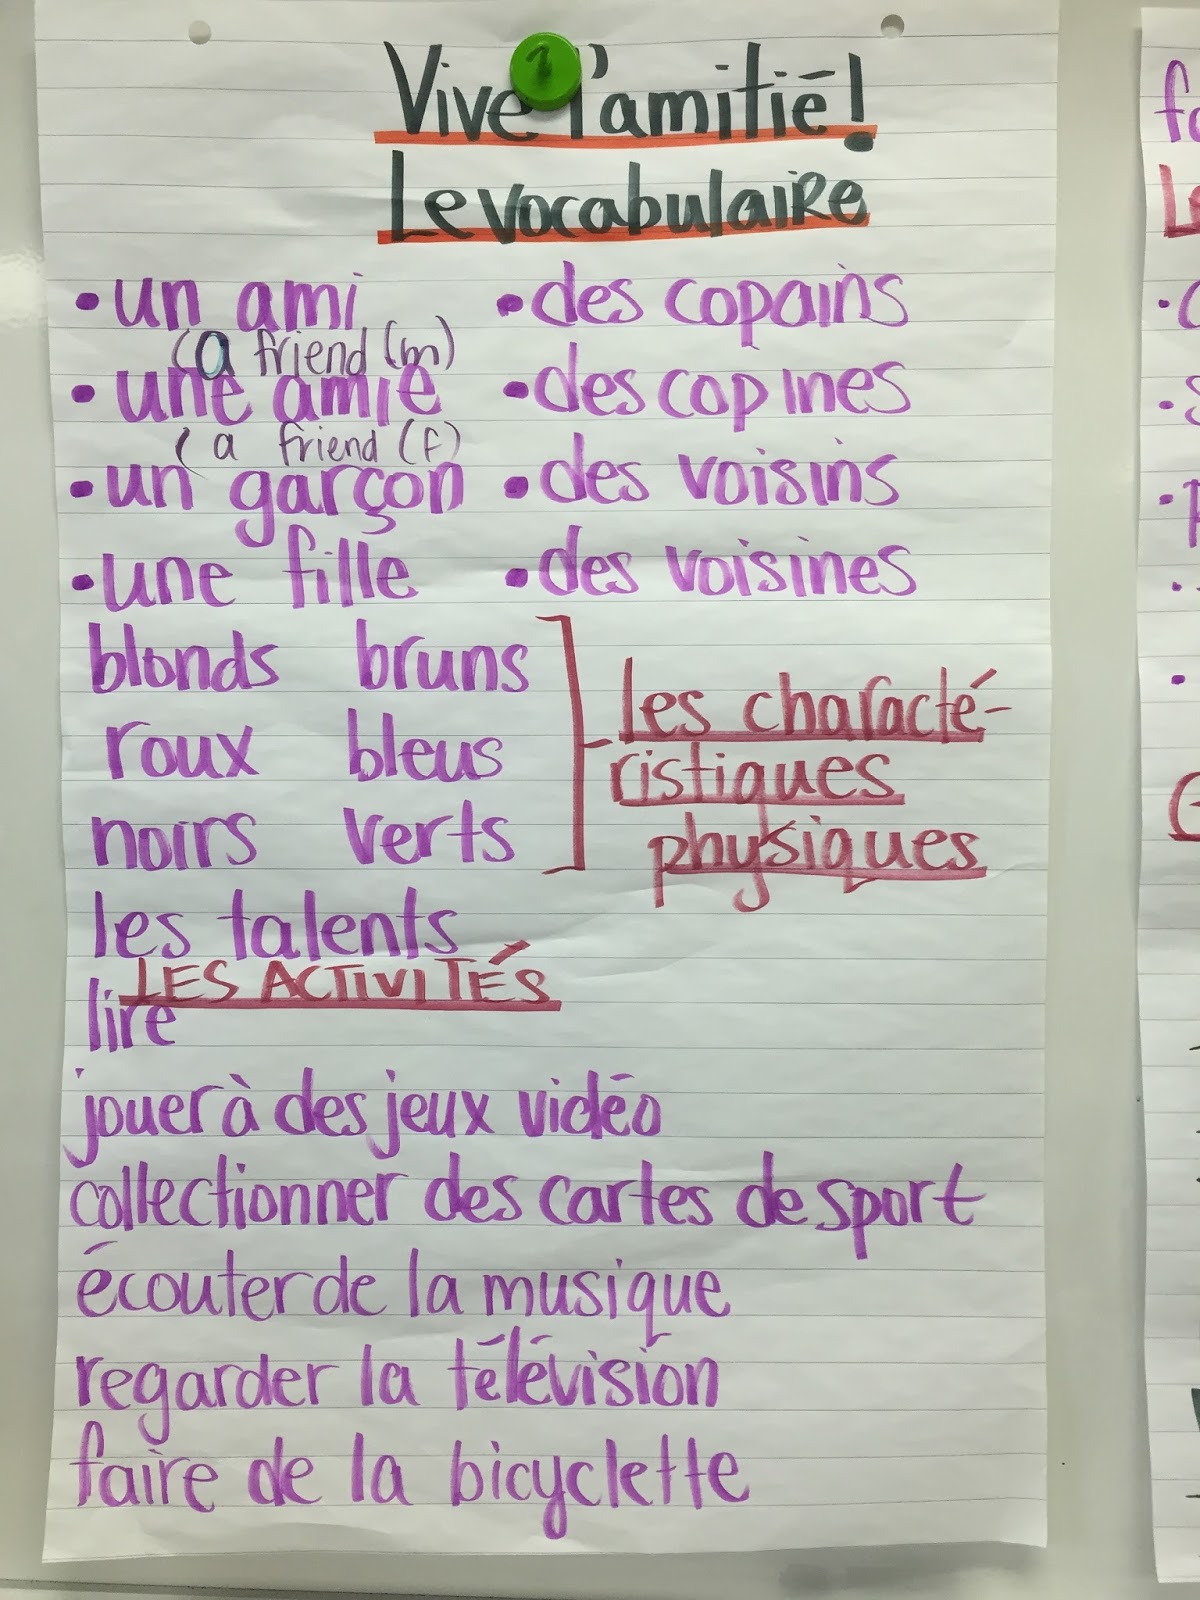 1
Vive l'amitié!
Le vocabulaire
• un ami
(a friend (m)
• une amie
(a friend (f)
• un garçon
• une fille
• des copains
• des copines
• des voisins
• des voisines
blonds bruns
roux bleus
noirs verts
les characté-
ristiques
physiques
les talents
LES ACTIVITÉS
lire
jouer à des jeux vidéo
collectionner des cartes de sport
écouter de la musique
regarder la télévision
faire de la bicyclette